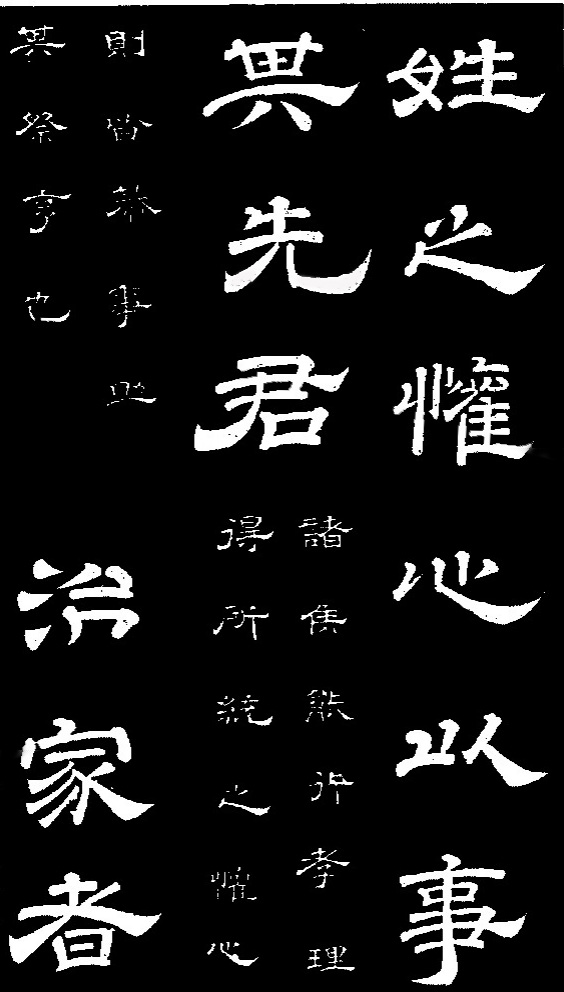 姓之懽心以事
其先君
諸侯能行孝理
得所統之懽心
則皆恭事助
其祭亨也
治家者